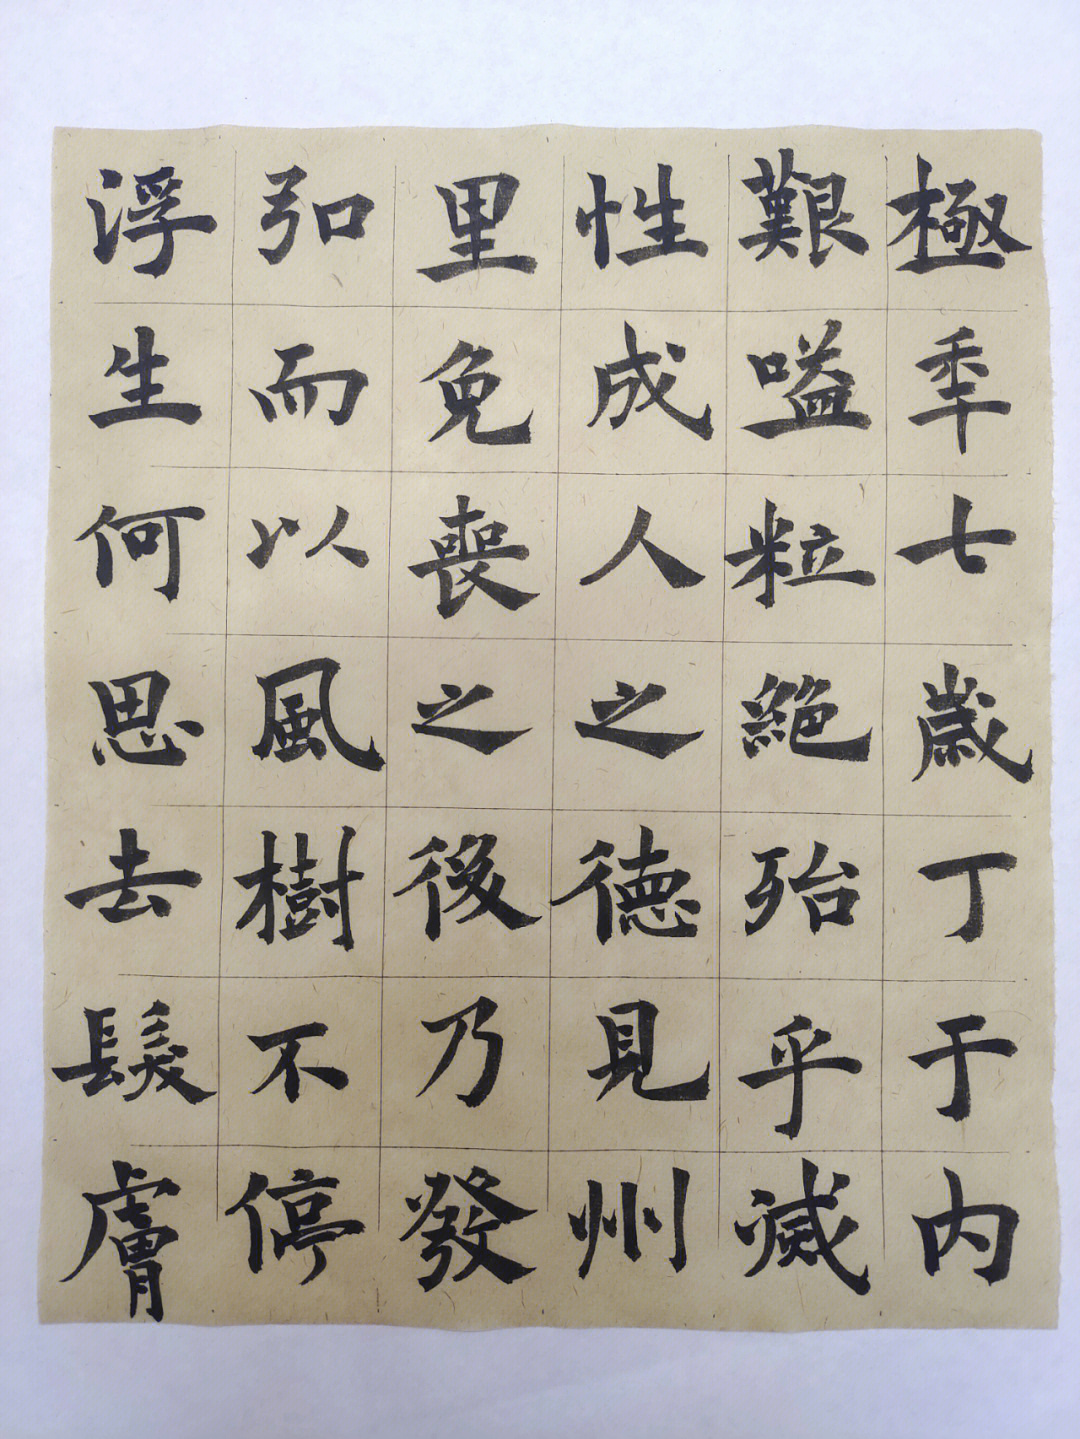 極秊七歲丁于内
艱嗑粒絕殆乎滅
性成人之德見州
里免喪之後乃發
弘而以風樹不停
浮生何思去髮膚